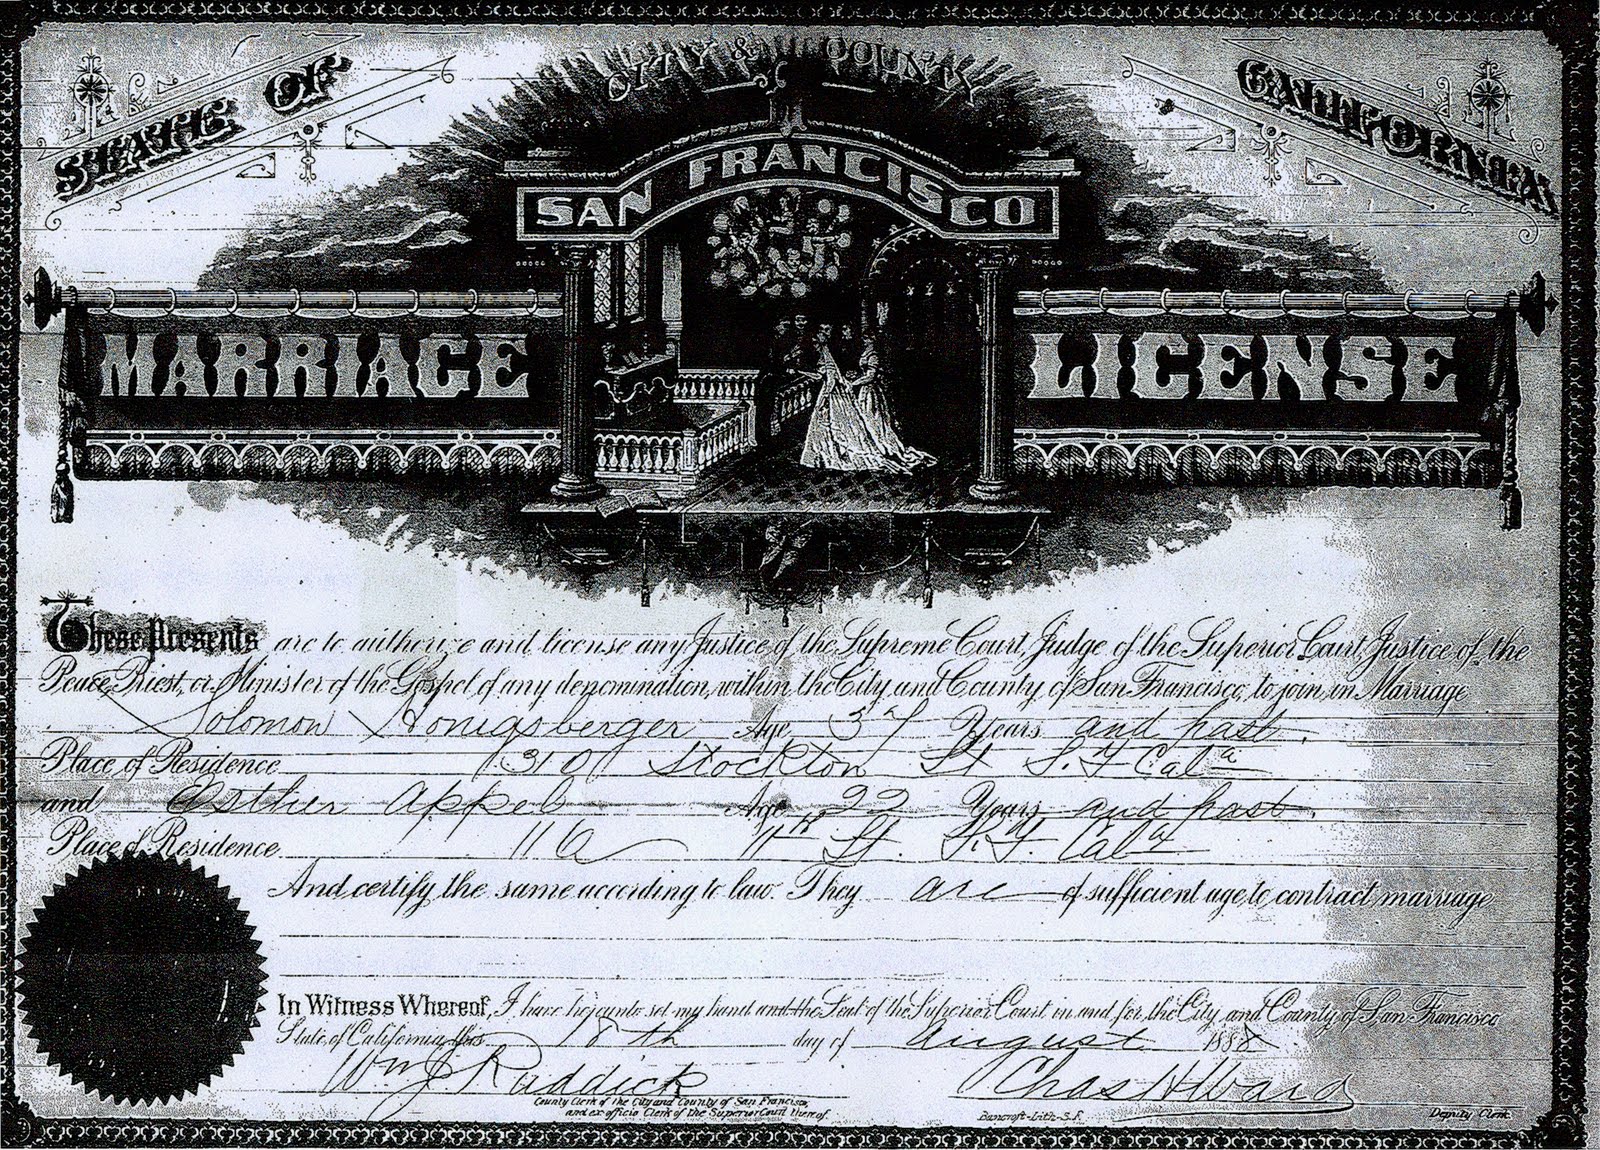 STATE OF
CITY & COUNTY
CALIFORNIA
SAN FRANCISCO
MARRIAGE LICENSE
These Presents are to authorize and license any Justice of the Supreme Court, Judge of the Superior Court, Justice of the
Peace, Priest, or Minister of the Gospel of any denomination, within the City and County of San Francisco, to join in Marriage
Solomon Honigsberger Age 37 Years and past.
Place of Residence 1310 Stockton St S. F Cala
and Esther Appel Age 22 Years and past.
Place of Residence 116 11th St. S. F. Cala
And certify the same according to law. They are of sufficient age to contract marriage
In Witness Whereof, I have hereunto set my hand and the Seal of the Superior Court in and for the City and County of San Francisco
State of California this 18th day of August 188
Wm J Ruddick Chas H Ward
County Clerk of the City and County of San Francisco,
and ex officio Clerk of the Superior Court thereof.
Bancroft-Lith-S.F.
Deputy Clerk